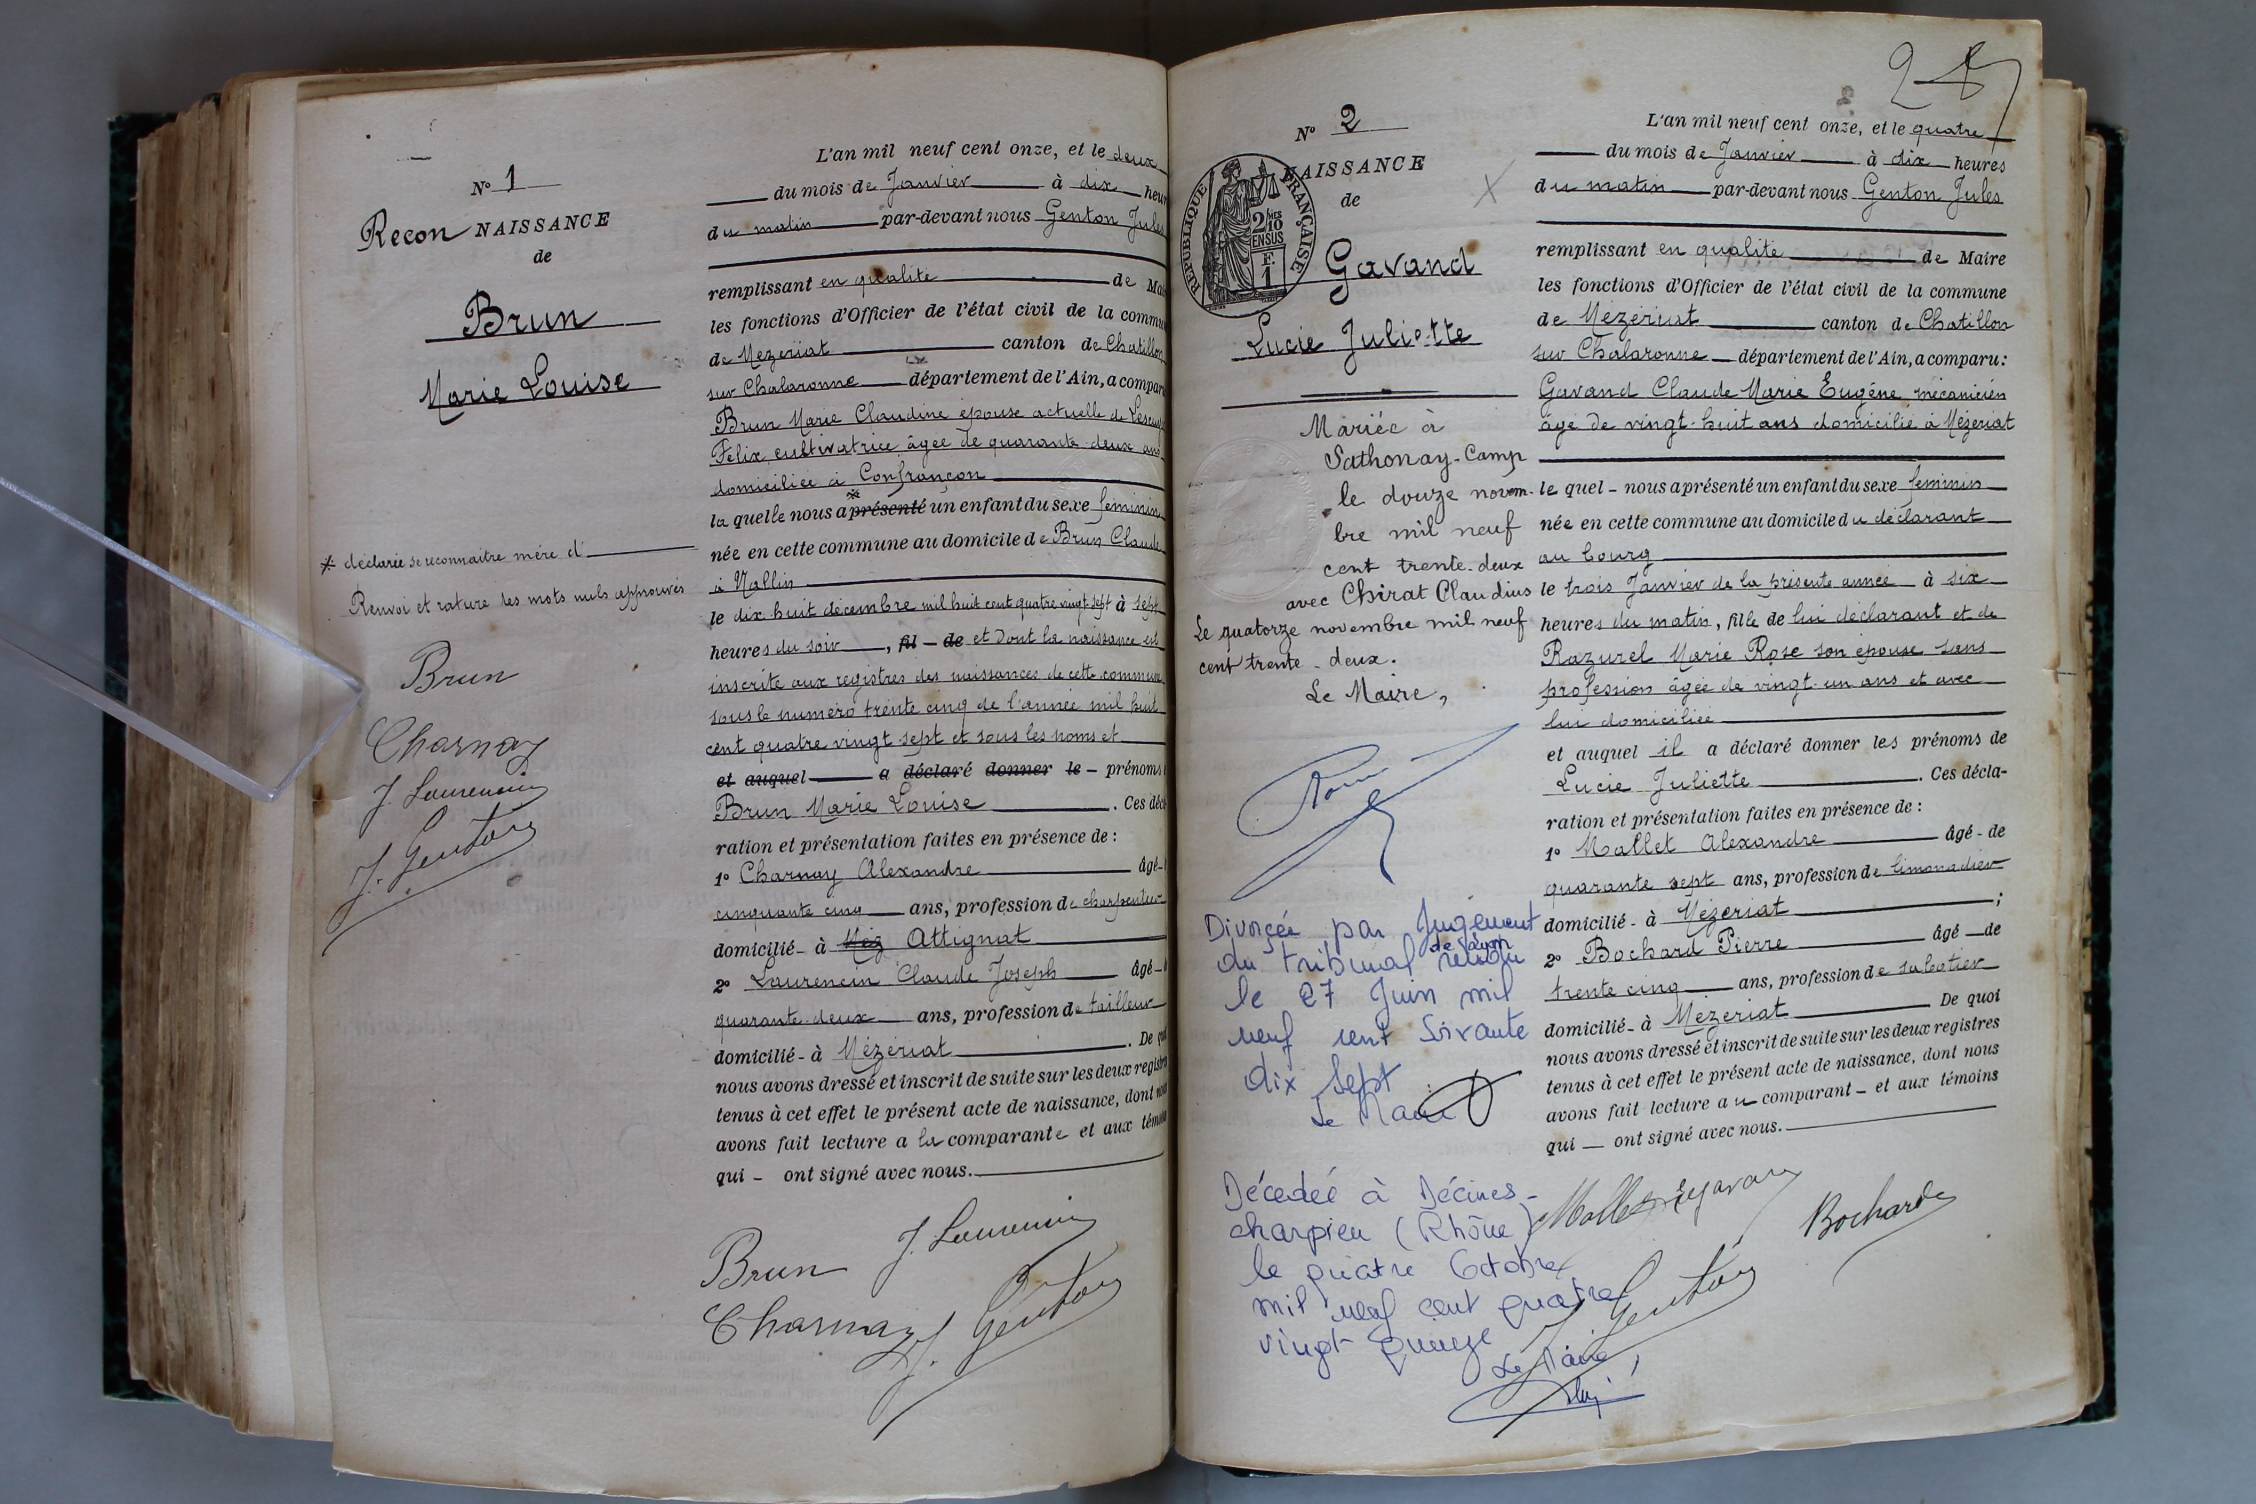 N° 1
Recon NAISSANCE
de
Brun
Marie Louise
* déclarée se reconnaitre mère d'
Renvoi et rature des mots nuls approuvés
Brun
Charnay
J. Laurencin
J. Genton
L'an mil neuf cent onze, et le deux
du mois de Janvier à dix heur
du matin par-devant nous Genton Jules
remplissant en qualité de Mai
les fonctions d'Officier de l'état civil de la commu
de Mézériat canton de Chatillon
sur Chalaronne département de l'Ain, a compar
Brun Marie Claudine épouse actuelle de
Félix cultivatrice âgée de quarante-deux ans
domiciliée à Confrançon
*
la quelle nous a présenté un enfant du sexe féminin
née en cette commune au domicile de Brun Claude
à Vallin
le dix huit décembre mil huit cent quatre vingt-sept à sept
heures du soir, fil - de et dont la naissance est
inscrite aux registres des naissances de cette commune
sous le numéro trente cinq de l'année mil huit
cent quatre vingt sept et sous les noms et
et auquel a déclaré donner le - prénoms
Brun Marie Louise. Ces décl
ration et présentation faites en présence de :
1° Charnay Alexandre âgé-
cinquante cinq ans, profession de charpentier
domicilié- à Méz Attignat
2° Laurencin Claude Joseph âgé-
quarante-deux ans, profession de tailleur
domicilié- à Mézériat. De qu
nous avons dressé et inscrit de suite sur les deux registr
tenus à cet effet le présent acte de naissance, dont nou
avons fait lecture a la comparante et aux témoi
qui - ont signé avec nous.
Brun J. Laurencin
Charnay J. Genton
N° 2
NAISSANCE
de
RÉPUBLIQUE FRANÇAISE
2 MES
10
EN SUS
F.
1
Gavand
Lucie Juliette
Mariée à
Sathonay-Camp
le douze novem-
bre mil neuf
cent trente-deux
avec Chirat Claudius
Le quatorze novembre mil neuf
cent trente-deux.
Le Maire,
Divorcée par Jugement
de Lyon
du tribunal rendu
le 27 Juin mil
neuf cent soixante
dix sept
Le Maire
Décédée à Décines-
charpieu (Rhône)
le quatre Octobre
mil neuf cent quatre
vingt quinze
Le Maire,
L'an mil neuf cent onze, et le quatre
du mois de Janvier à dix heures
du matin par-devant nous Genton Jules
remplissant en qualité de Maire
les fonctions d'Officier de l'état civil de la commune
de Mézériat canton de Chatillon
sur Chalaronne département de l'Ain, a comparu :
Gavand Claude Marie Eugène mécanicien
âgé de vingt-huit ans domicilié à Mézériat
le quel - nous a présenté un enfant du sexe féminin
née en cette commune au domicile du déclarant
au bourg
le trois Janvier de la présente année à six
heures du matin, fille de lui déclarant et de
Razurel Marie Rose son épouse sans
profession âgée de vingt-un ans et avec
lui domiciliée
et auquel il a déclaré donner les prénoms de
Lucie Juliette. Ces décla-
ration et présentation faites en présence de :
1° Mallet Alexandre âgé - de
quarante sept ans, profession de limonadier
domicilié- à Mézériat ;
2° Bochard Pierre âgé de
trente cinq ans, profession de sabotier
domicilié- à Mézériat De quoi
nous avons dressé et inscrit de suite sur les deux registres
tenus à cet effet le présent acte de naissance, dont nous
avons fait lecture au comparant - et aux témoins
qui - ont signé avec nous.
Mallet Gavand Bochard
J. Genton